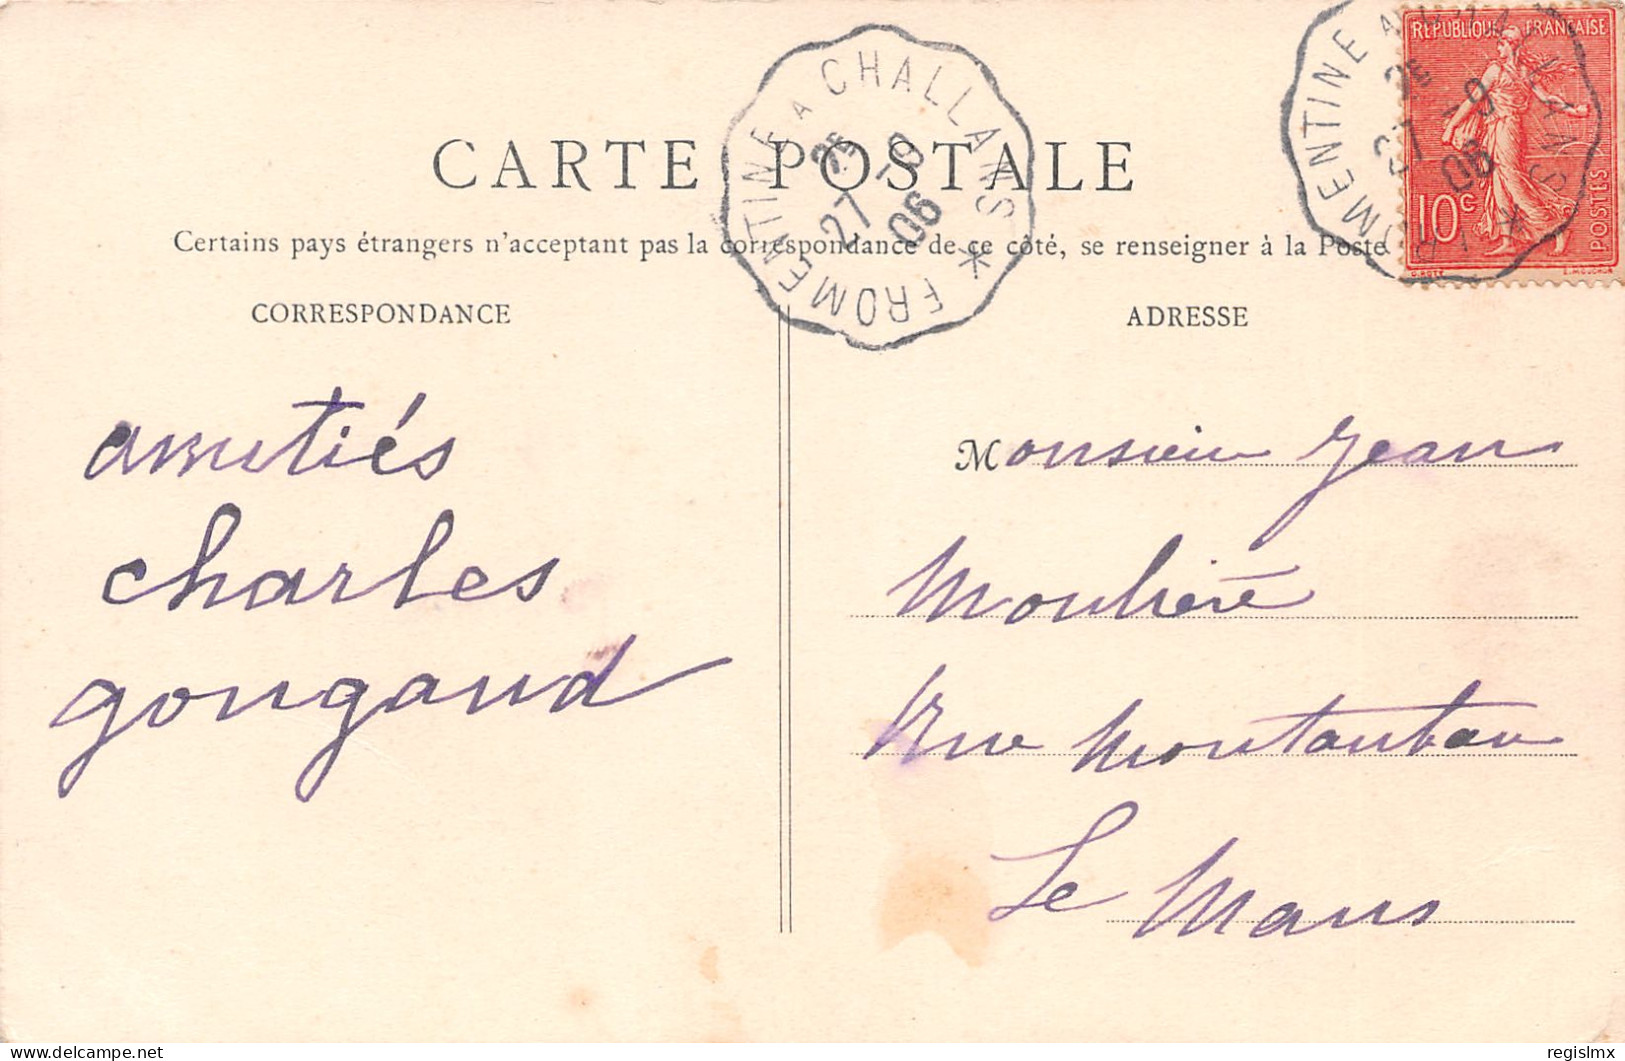 CARTE POSTALE
Certains pays étrangers n'acceptant pas la correspondance de ce côté, se renseigner à la Poste
FROMENTINE A CHALLANS *
2E
27 -9
06
FROMENTINE A CHALLANS *
2E
27 -9
06
RÉPUBLIQUE FRANÇAISE
10c
POSTES
O. ROTY
E. MOUCHON
CORRESPONDANCE
amitiés
charles
gougaud
ADRESSE
Monsieur Jean
Moulière
Rue Montauban
Le Mans
© delcampe.net
regislmx